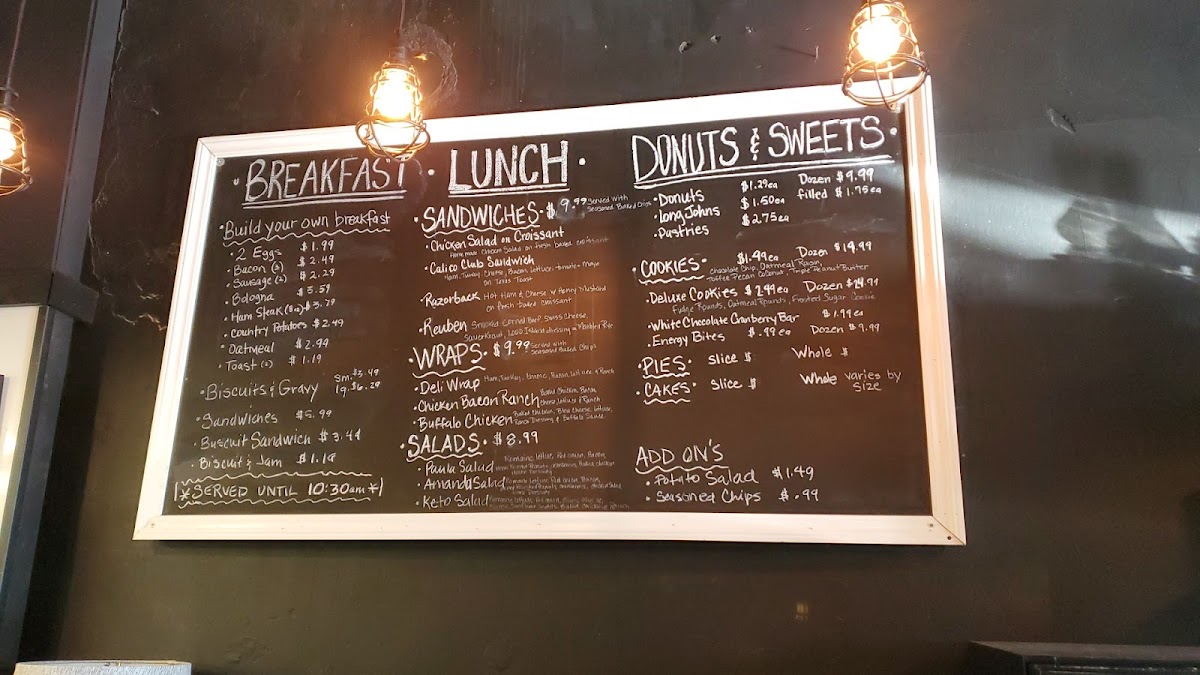 BREAKFAST
Build your own breakfast
2 Eggs $1.99
Bacon (3) $2.49
Sausage (2) $2.29
Bologna $5.59
Ham Steak (8oz) $3.79
Country Potatoes $2.49
Oatmeal $2.99
Toast (2) $1.19
Biscuits & Gravy sm. $3.49
lg. $6.29
Sandwiches $5.99
Buscuit Sandwich $3.49
Biscuit & Jam $1.19
*SERVED UNTIL 10:30am*
LUNCH
SANDWICHES $9.99 Served with
Seasoned Baked Chips
Chicken Salad on Croissant
Homemade Chicken Salad on fresh baked croissant
Calico Club Sandwich
Ham, Turkey, Cheese, Bacon, Lettuce, tomato - Mayo
on Texas Toast
Razorback Hot Ham & Cheese w/ Honey Mustard
on fresh baked croissant
Reuben Smoked Corned Beef, Swiss Cheese,
Sauerkraut, 1000 Island dressing on Marbled Rye
WRAPS $9.99 Served with
Seasoned Baked Chips
Deli Wrap Ham, Turkey, Bacon, Lettuce & Ranch
Chicken Bacon Ranch Baked Chicken, Bacon,
Cheese, Lettuce & Ranch
Buffalo Chicken Baked Chicken, Bleu Cheese, Lettuce,
Ranch Dressing & Buffalo Sauce
SALADS $8.99
Paula Salad Romaine Lettuce, Red onion, Bacon,
Amanda Salad Romaine Lettuce, Red onion, Bacon,
Keto Salad
DONUTS & SWEETS
Donuts $1.29 ea Dozen $9.99
Long Johns $1.50 ea filled $1.75 ea
Pastries $2.75 ea
COOKIES $1.49 ea Dozen $14.99
Chocolate Chip, Oatmeal Raisin,
Toffee Pecan Coconut, Triple Peanut Butter
Deluxe Cookies $2.49 ea Dozen $24.99
Fudge Rounds, Oatmeal Rounds, Frosted Sugar Cookie
White Chocolate Cranberry Bar $1.99 ea
Energy Bites $.99 ea Dozen $9.99
PIES Slice $ Whole $
CAKES Slice $ Whole varies by
size
ADD ON'S
Potato Salad $1.49
Seasoned Chips $.99